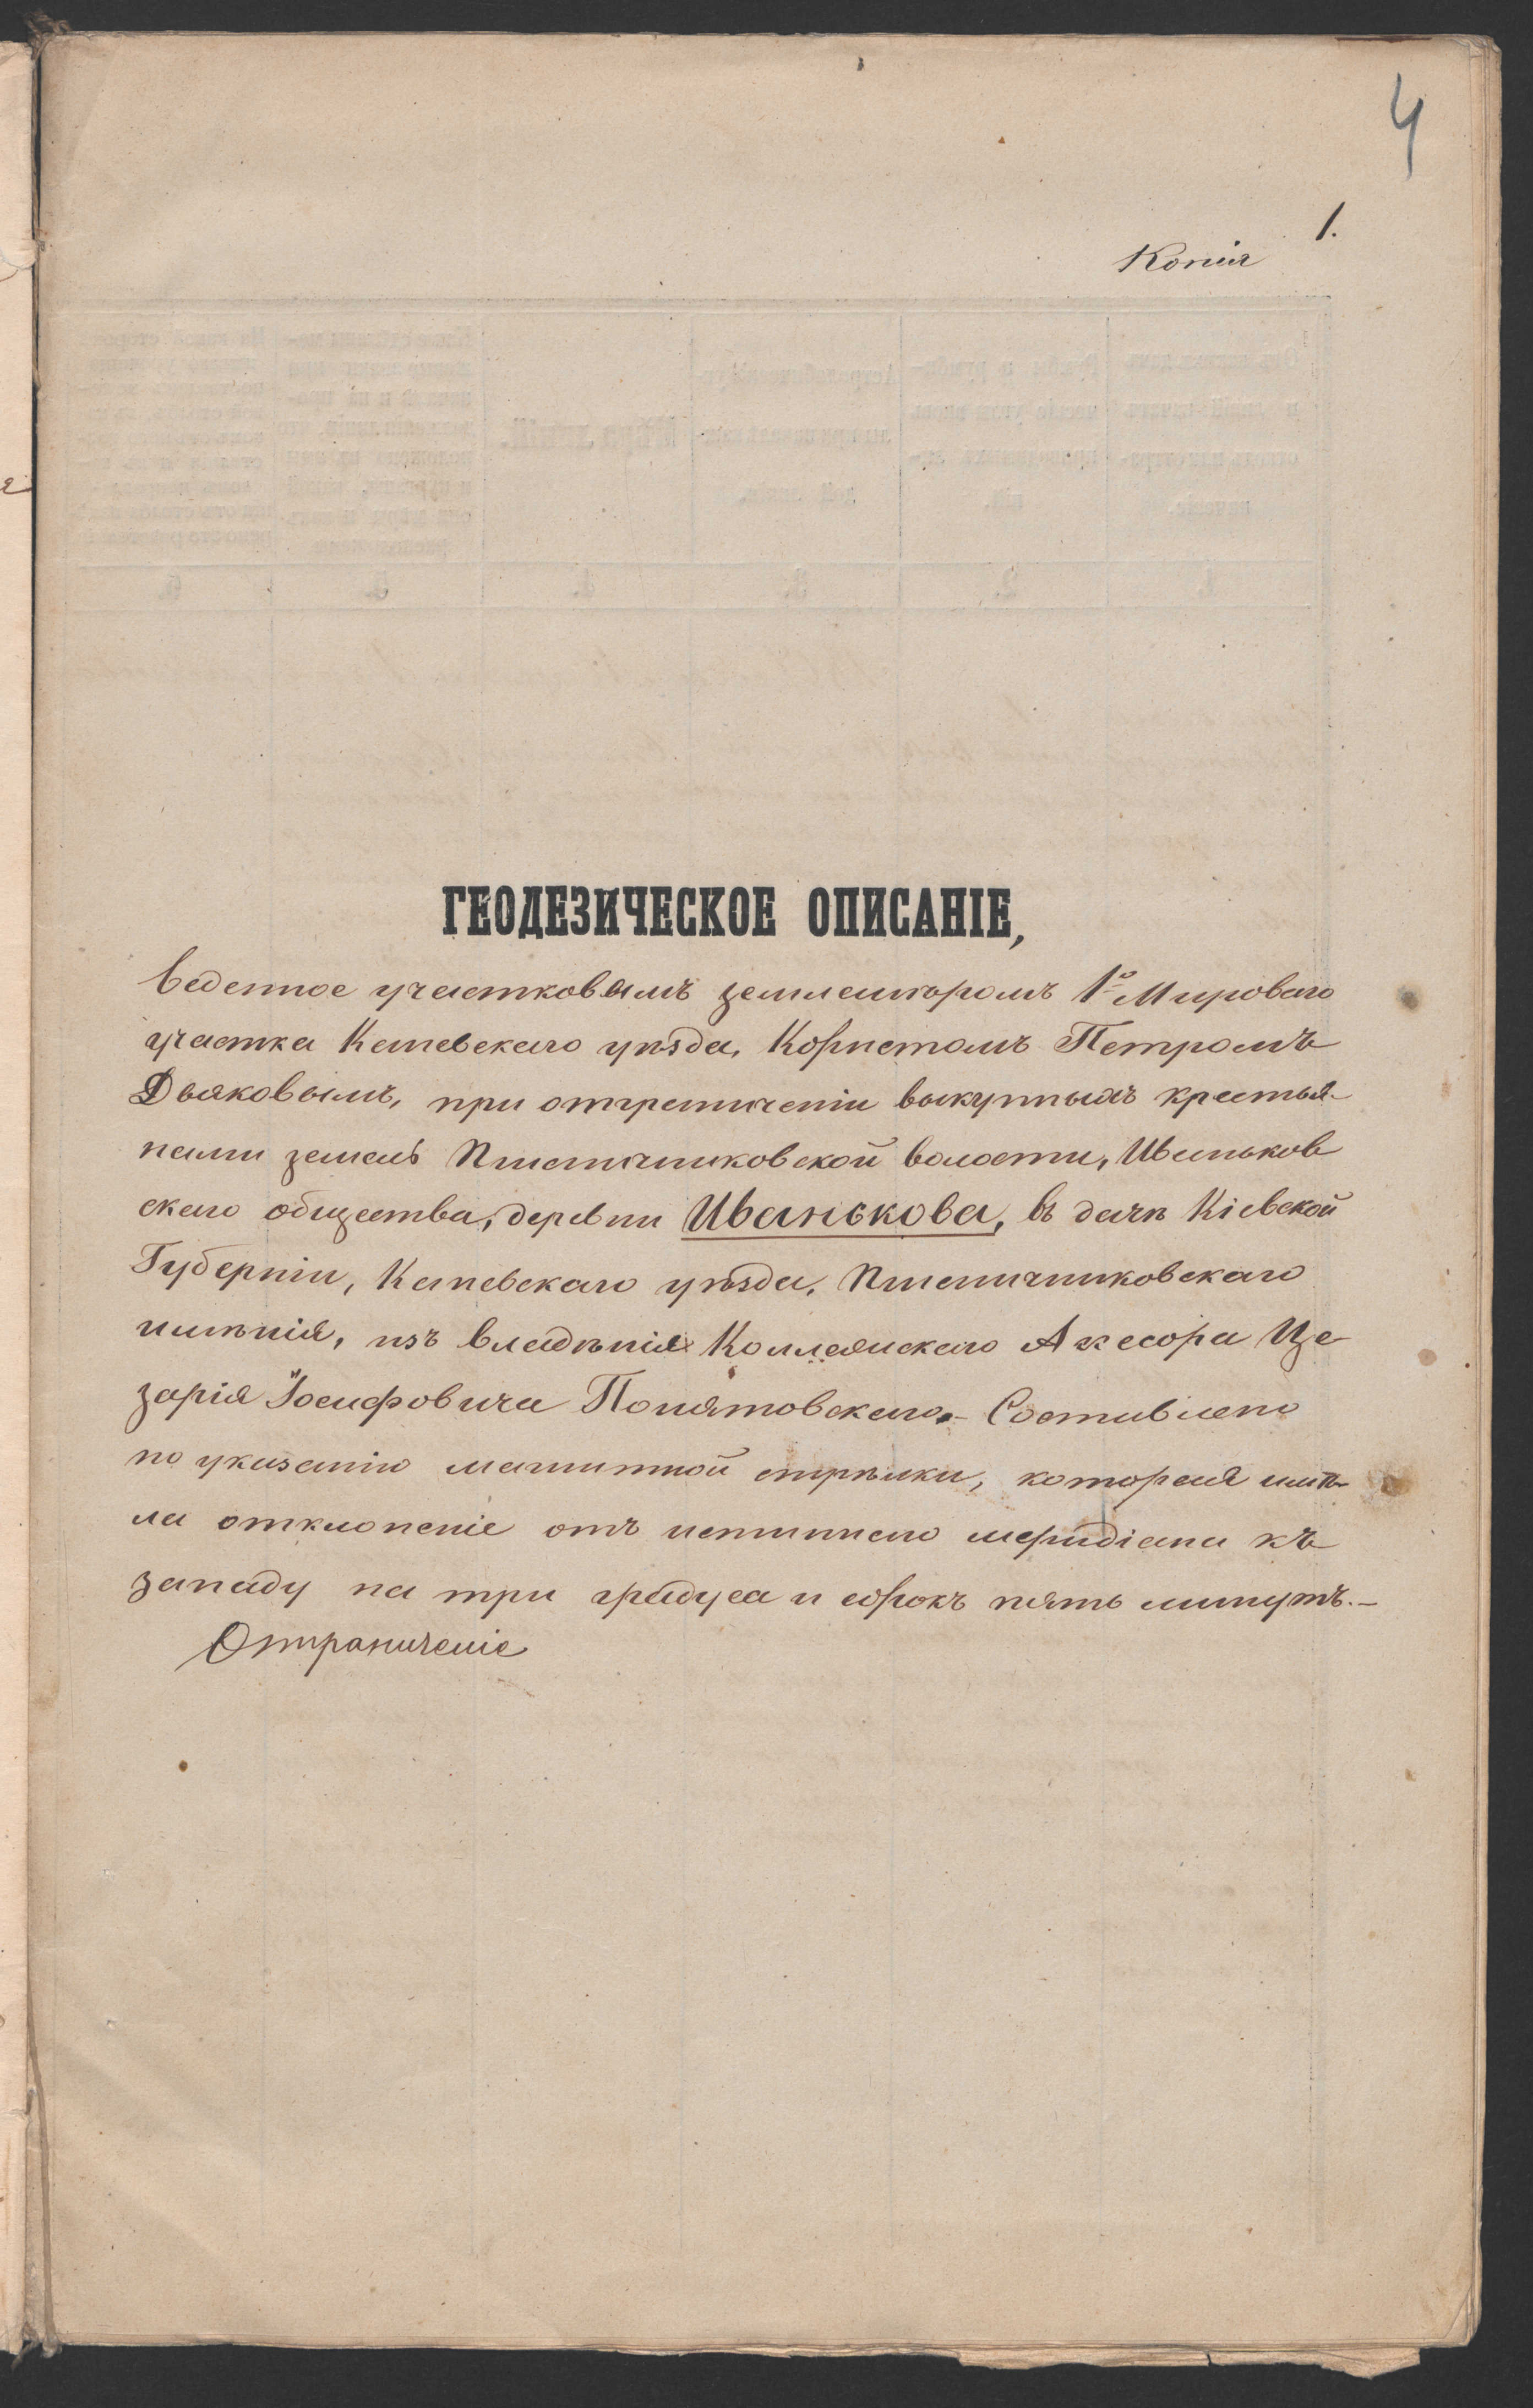 4
1.
Копія
ГЕОДЕЗИЧЕСКОЕ ОПИСАНІЕ,
веденное участковымъ землемѣромъ 1го Мироваго
участка Каневскаго уѣзда, Корнетомъ Петромъ
Дьяковымъ, при отграниченіи выкупныхъ крестья-
нами земель Пшеничниковской волости, Иваньков
скаго общества, деревни Иванькова, въ дачѣ Кіевской
Губерніи, Каневскаго уѣзда, Пшеничниковскаго
имѣнія, изъ владѣнія Коллежскаго Асесора Це
зарія Іосифовича Понятовскаго. – Составлено
по указанію магнитной стрѣлки, которая имѣ-
ла отклоненіе отъ истиннаго меридіана къ
западу на три градуса и сорокъ пять минутъ. –
Отграниченіе